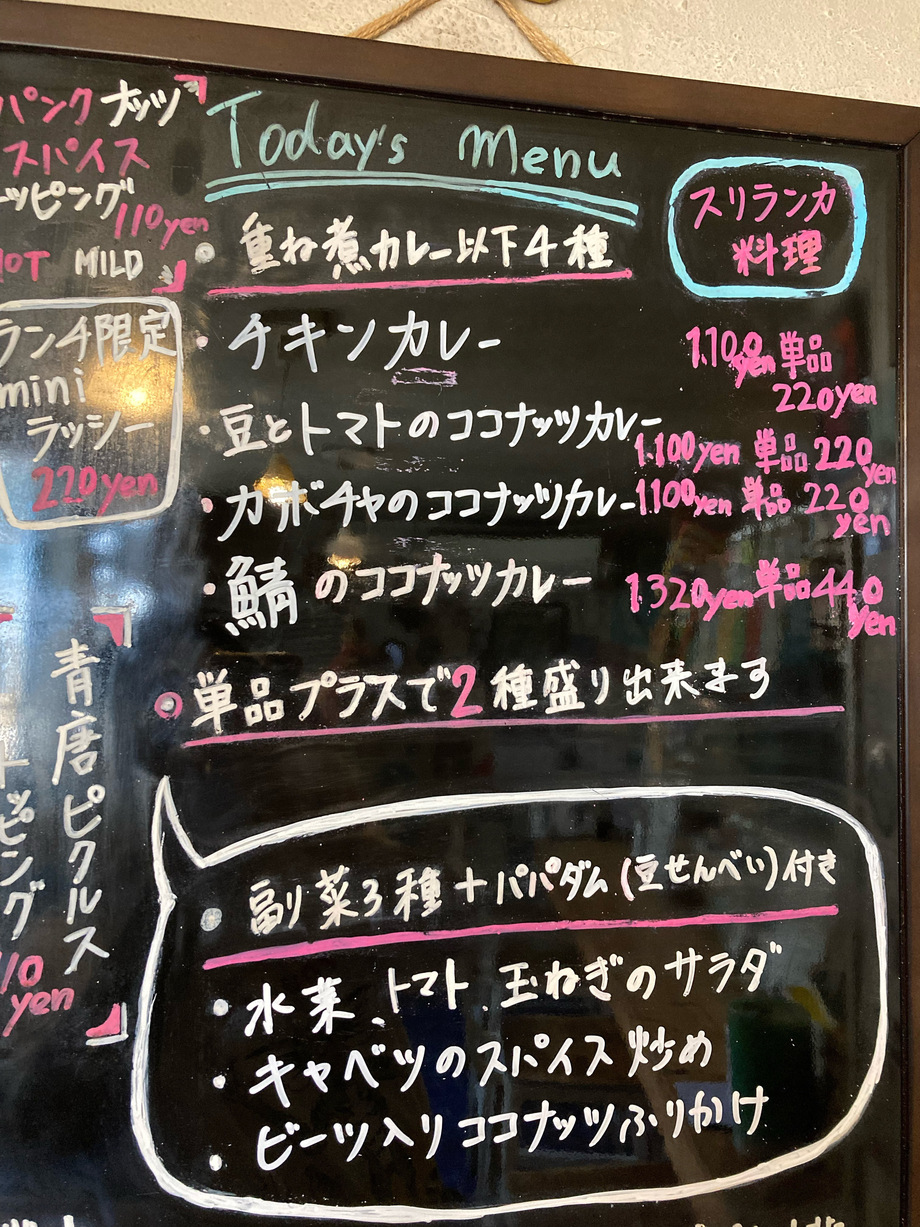 パンク ナッツ
スパイス
ッピング
110yen
HOT MILD
ランチ限定
mini
ラッシー
220yen
青唐ピクルス
トッピング
110
yen
Today's Menu
スリランカ
料理
・重ね煮カレー以下4種
・チキンカレー 1.100yen 単品
220yen
・豆とトマトのココナッツカレー
1.100yen 単品 220yen
・カボチャのココナッツカレー 1.100yen 単品 220yen
・鯖のココナッツカレー 1.320yen 単品 440yen
◎単品プラスで2種盛り出来ます
・副菜3種+パパダム(豆せんべい)付き
・水菜、トマト、玉ねぎのサラダ
・キャベツのスパイス炒め
・ビーツ入りココナッツふりかけ